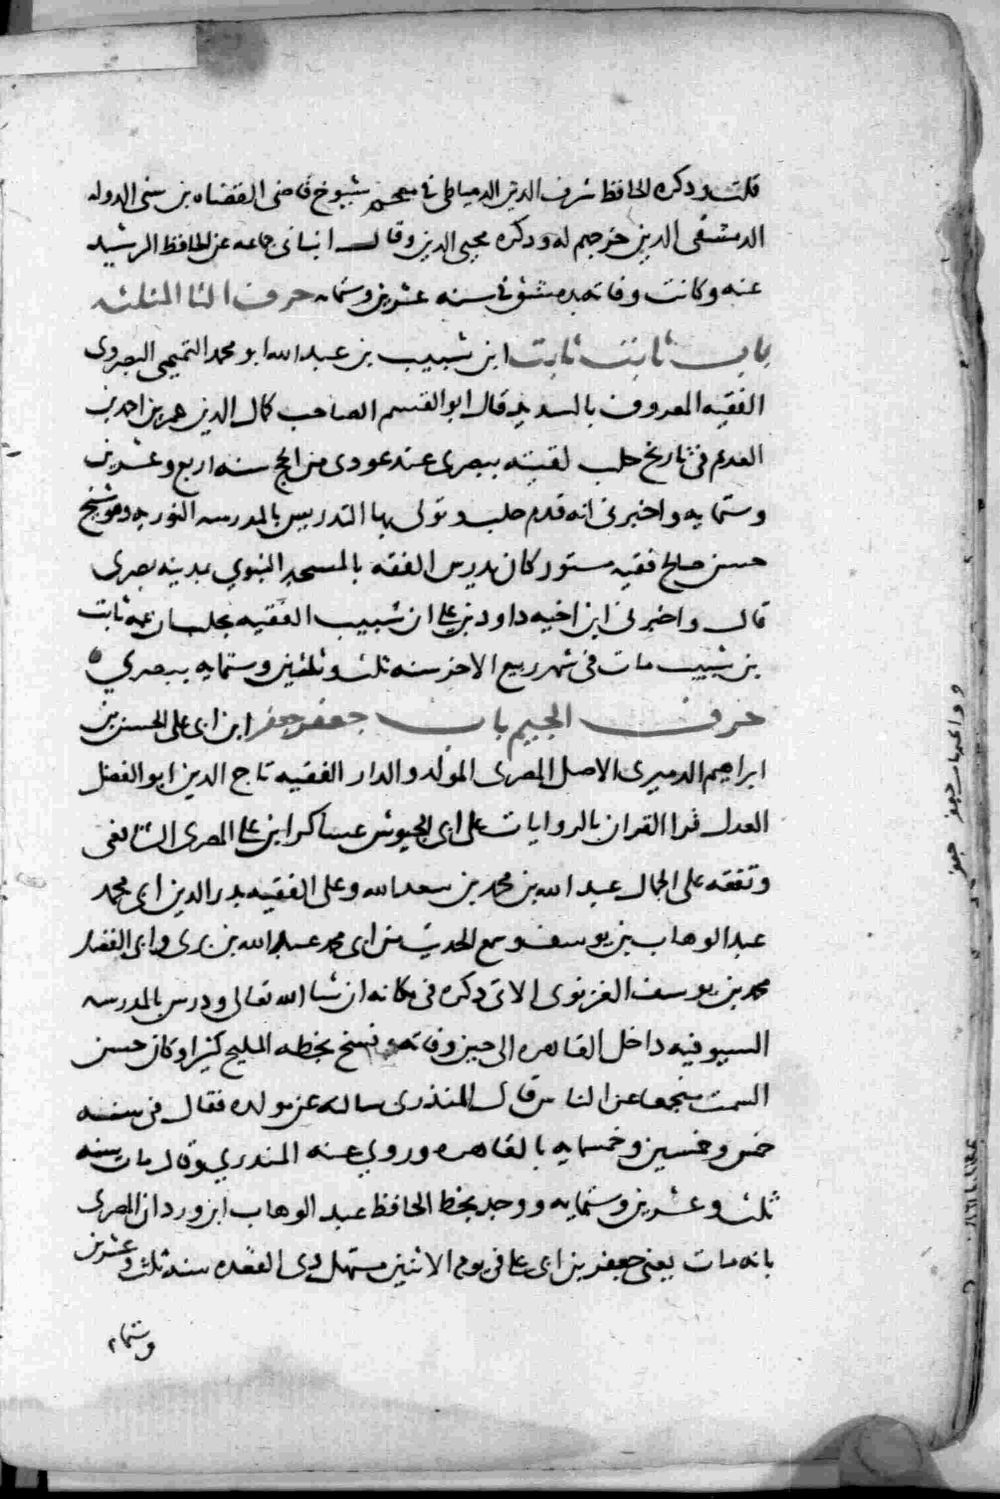 قلت وذكره الحافظ شرف الدين الدمياطى فى معجم شيوخ قاضى القضاه بن سنى الدوله
الدمشقى الدين خرجهم له وذكره محيى الدين وقال انبانى جماعه عن الحافظ الرشيد
عنه وكانت وفاته بدمشق فى سنه عشرين وستمايه حرف الثا المثلثه
باب ثابت ثابت ابن شبيب بن عبد الله ابو محمد التميمى البصروى
الفقيه المعروف بالسديد قال ابو القسم الصاحب كمال الدين عمر بن احمد بن
العديم فى تاريخ حلب لقيته ببصرى عند عودى من الحج سنه اربع وعشرين
وستمايه واخبرنى انه قدم حلب وتولى بها التدريس بالمدرسه النوريه وهو شيخ
حسن صالح فقيه مستور كان يدرس الفقه بالمسجد النبوي بمدينه بصرى
قال واخبرنى ابن اخيه داود بن على ان شبيب الفقيه بحلب ان عمه ثابت
بن شبيب مات فى شهر ربيع الاخر سنه ثلث وثلثين وستمايه ببصري
حرف الجيم باب جعفر جعفر ابن ابى على الحسن بن
ابراهيم الدميرى الاصل المصرى المولد والدار الفقيه تاج الدين ابو الفضل
العدل قرا القران بالروايات على ابى الجيوش عساكر ابن على المصرى الشافعى
وتفقه على الجمال عبد الله بن محمد بن سعد الله وعلى الفقيه بدر الدين ابى محمد
عبد الوهاب بن يوسف وسمع الحديث من ابى محمد عبد الله بن برى وابى الفضل
محمد بن يوسف الغزنوى الاتى ذكره فى مكانه ان شا الله تعالى ودرس بالمدرسه
السيوفيه داخل القاهره الى حين وفاته ونسخ بخطه المليح كثيرا وكان حسن
السمت منجمعا عن الناس قال المنذرى سالته عن مولده فقال فى سنه
خمس وخمسين وخمسمايه بالقاهره وروي عنه المنذري وقال مات سنه
ثلث وعشرين وستمايه ووجد بخط الحافظ عبد الوهاب ابن وردان المصرى
بانه مات يعنى جعفر بن ابى على فى يوم الاثنين مستهل ذى القعده سنه ثلث وعشرين
وستمايه